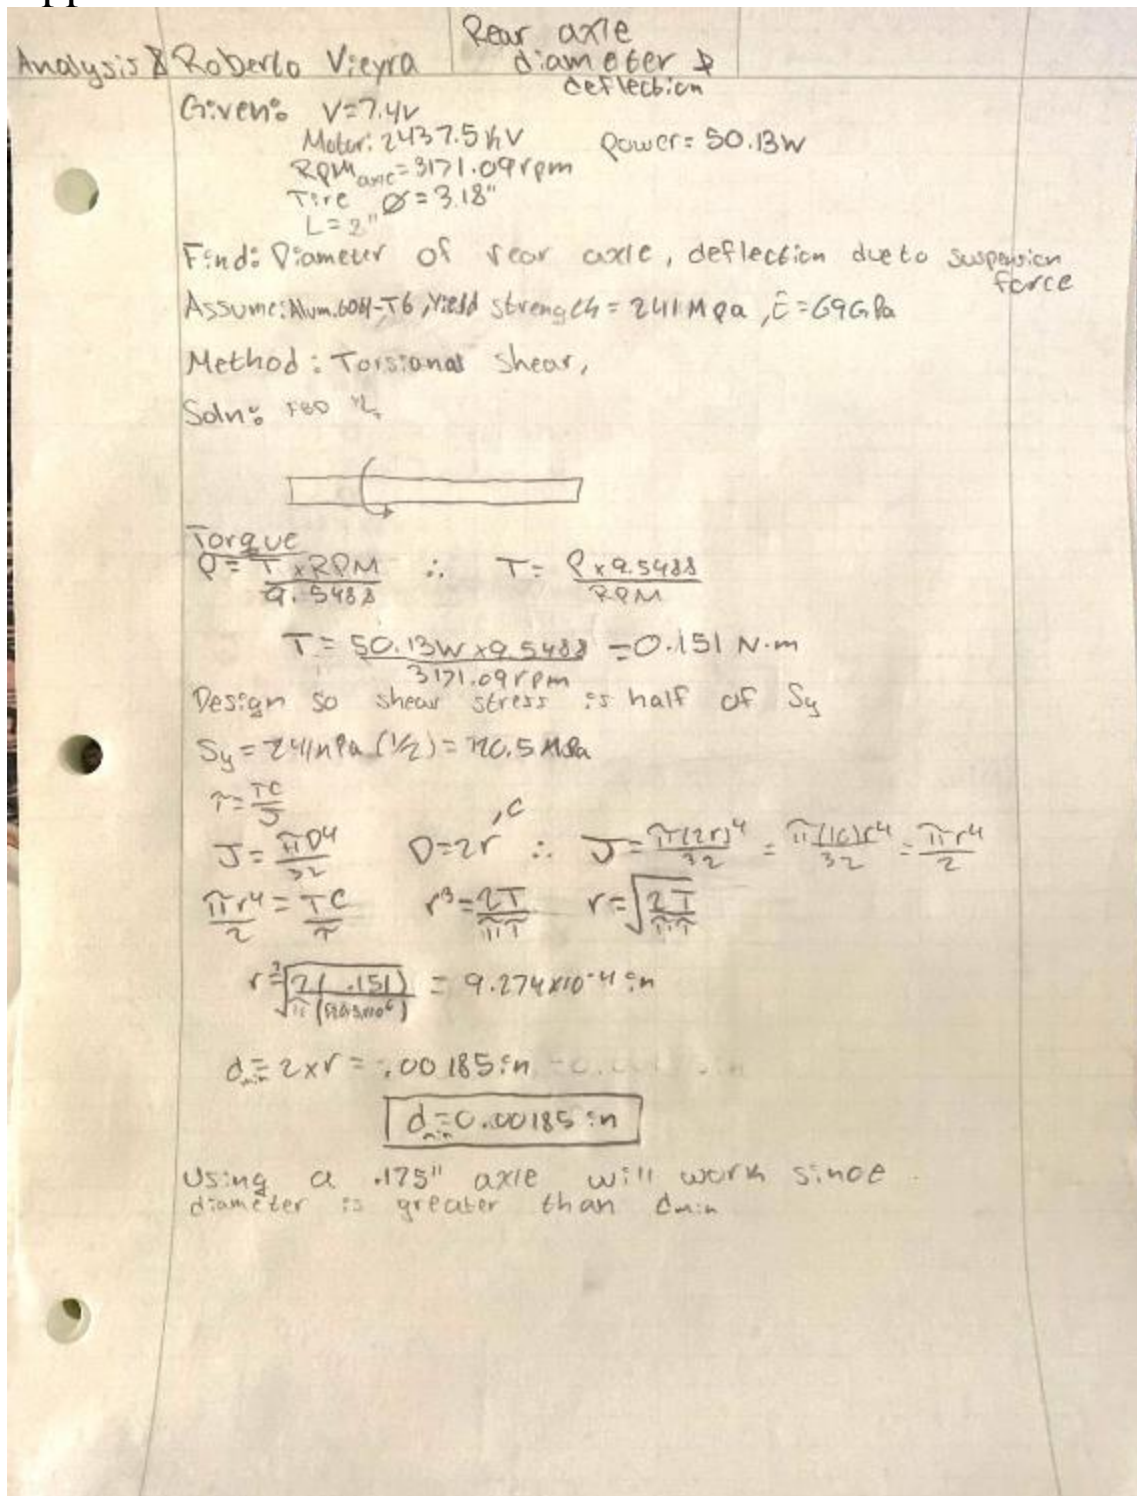 Analysis 8 Roberto Vieyra Rear axle
diameter &
deflection
Given: V=7.4V
Motor: 2437.5 KV Power= 50.13W
RPM axle = 3171.09 rpm
Tire Ø = 3.18"
L = 2"
Find: Diameter of rear axle, deflection due to suspension
force
Assume: Alum. 6061-T6, Yield strength = 241 MPa, E = 69GPa
Method: Torsional Shear,
Soln: FBD
Torque
P = T × RPM / 9.5488 ∴ T = P × 9.5488 / RPM
T = 50.13W × 9.5488 / 3171.09 rpm = 0.151 N·m
Design so shear stress is half of Sy
Sy = 241MPa (1/2) = 120.5 MPa
τ = TC/J
J = πD⁴/32 D=2r ,c ∴ J = π(2r)⁴/32 = π(16)r⁴/32 = πr⁴/2
πr⁴/2 = TC/τ r³ = 2T/πτ r = √(2T/πτ)
r = ³√(2(.151)/π(120.5x10⁶)) = 9.274x10⁻⁴ in
dmin = 2xr = .00185in
dmin = 0.00185 in
Using a .175" axle will work since
diameter is greater than dmin